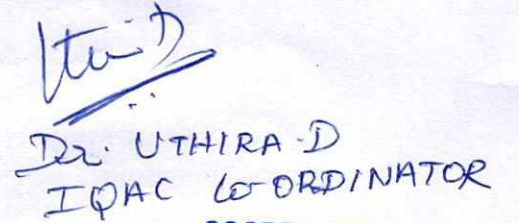 Dr. UTHIRA.D
IQAC CO-ORDINATOR